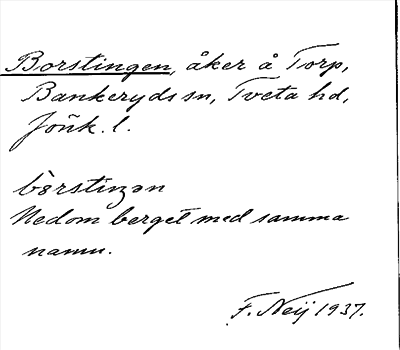 Borstingen, åker å Torp,
Bankeryds sn, Tveta hd,
Jönk. l.
bòrstiŋən
Nedom berget med samma
namn.
F. Neij 1937.